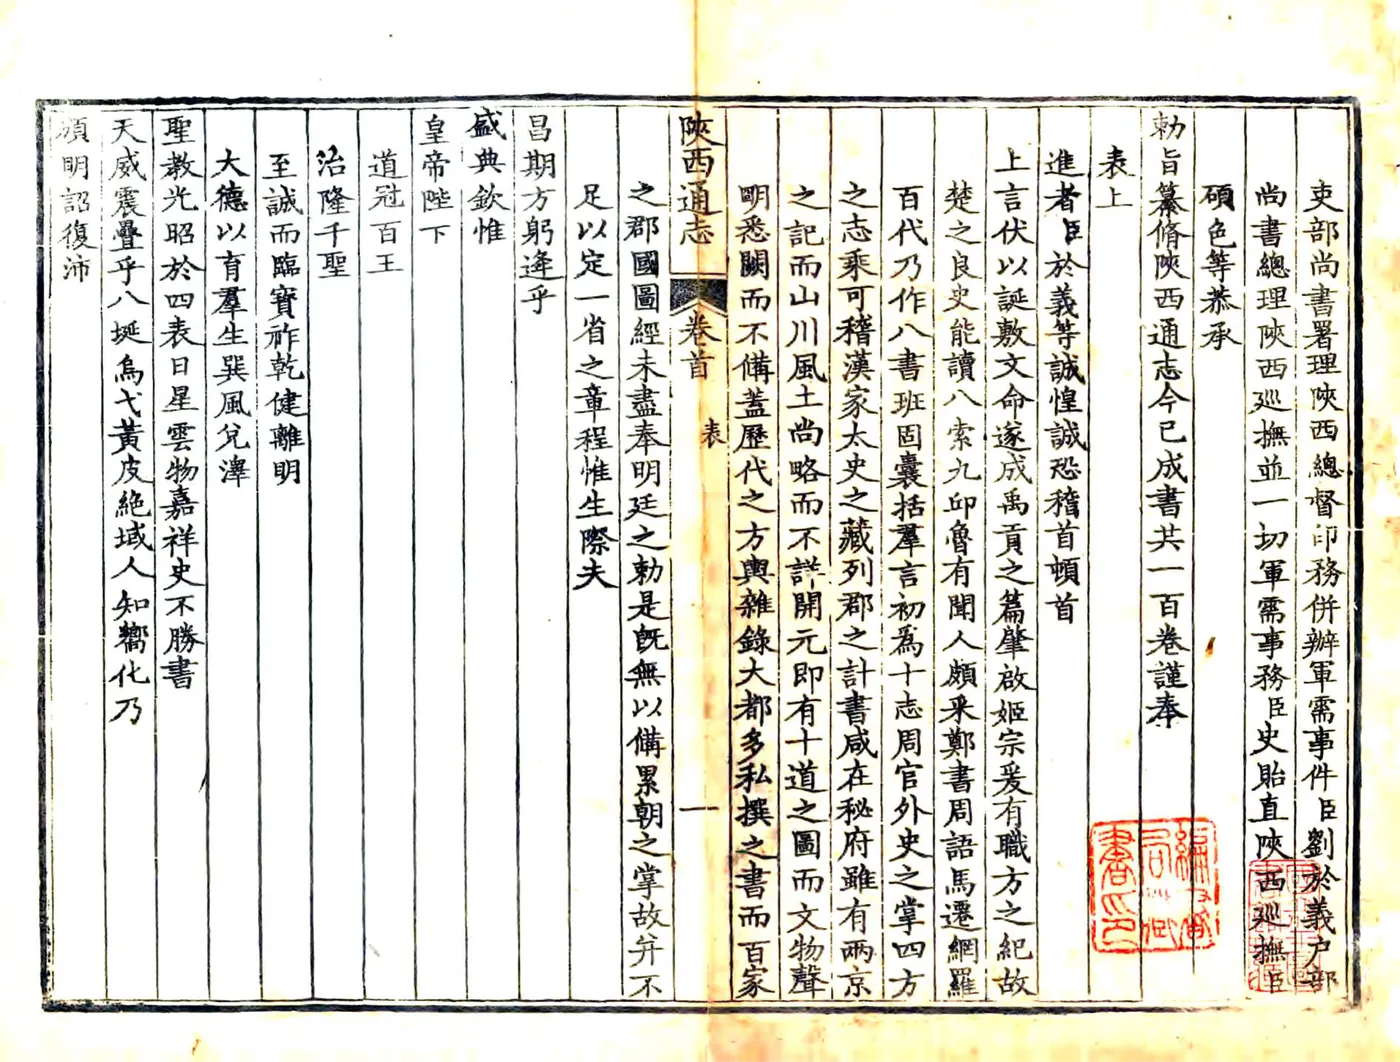 吏部尚書署理陝西總督印務併辦軍需事件臣劉於義戶部
尚書總理陝西廵撫並一切軍需事務臣史貽直陝西廵撫臣
碩色等恭承
勅旨纂脩陝西通志今已成書共一百卷謹奉
表上
進者臣於義等誠惶誠恐稽首頓首
上言伏以誕敷文命遂成禹貢之篇肇啟姬宗爰有職方之紀故
楚之良史能讀八索九邱魯有聞人頗釆鄭書周語馬遷網羅
百代乃作八書班固囊括羣言初爲十志周官外史之掌四方
之志乘可稽漢家太史之藏列郡之計書咸在秘府雖有兩京
之記而山川風土尚略而不詳開元即有十道之圖而文物聲
明悉闕而不備蓋歷代之方輿雜錄大都多私撰之書而百家
陝西通志 卷首 表 一
之郡國圖經未盡奉明廷之勅是旣無以備累朝之掌故并不
足以定一省之章程惟生際夫
昌期方躬逢乎
盛典欽惟
皇帝陛下
道冠百王
治隆千聖
至誠而臨寶祚乾健離明
大德以育羣生巽風兌澤
聖教光昭於四表日星雲物嘉祥史不勝書
天威震疊乎八埏烏弋黃皮絕域人知嚮化乃
頒明詔復沛